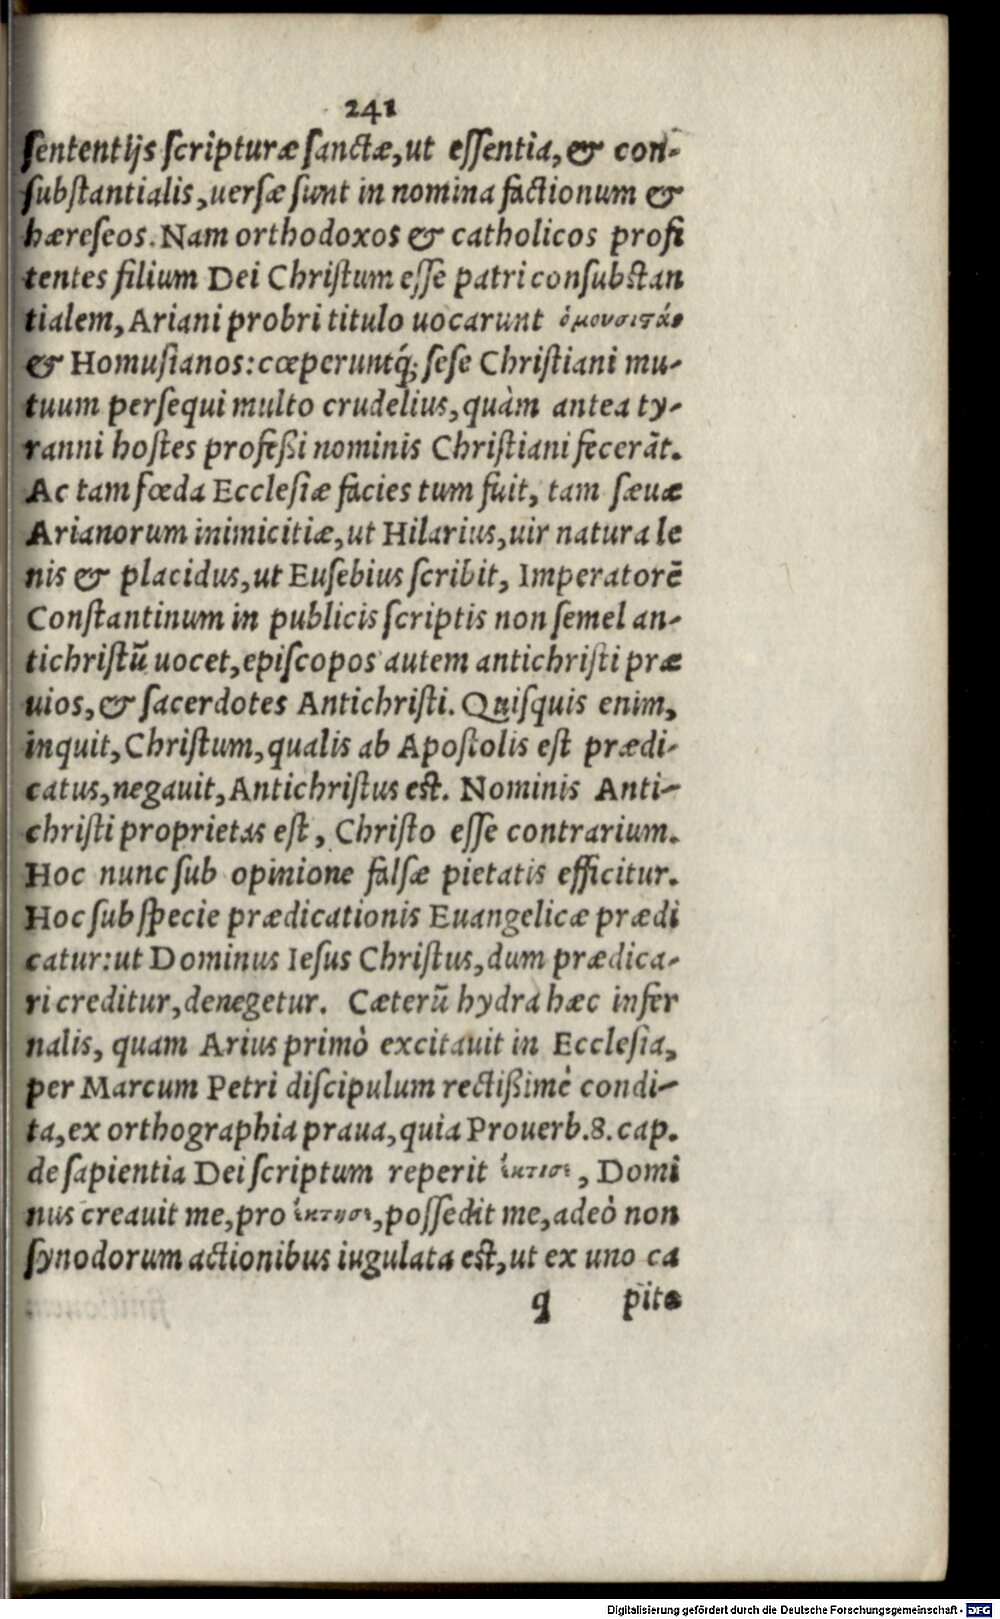 241
sententijs scripturæ sanctæ, ut essentia, & con-
substantialis, uersæ sunt in nomina factionum &
hæreseos. Nam orthodoxos & catholicos profi
tentes filium Dei Christum esse patri consubstan
tialem, Ariani probri titulo uocarunt ὁμουσιτάς
& Homusianos: cœperuntq́; sese Christiani mu-
tuum persequi multo crudelius, quàm antea ty-
ranni hostes profeßi nominis Christiani fecerãt.
Ac tam fœda Ecclesiæ facies tum fuit, tam sæuæ
Arianorum inimicitiæ, ut Hilarius, uir natura le
nis & placidus, ut Eusebius scribit, Imperatorẽ
Constantinum in publicis scriptis non semel an-
tichristũ uocet, episcopos autem antichristi præ
uios, & sacerdotes Antichristi. Quisquis enim,
inquit, Christum, qualis ab Apostolis est prædi-
catus, negauit, Antichristus est. Nominis Anti-
christi proprietas est, Christo esse contrarium.
Hoc nunc sub opinione falsæ pietatis efficitur.
Hoc sub specie prædicationis Euangelicæ prædi
catur: ut Dominus Iesus Christus, dum prædica-
ri creditur, denegetur. Cæterũ hydra hæc infer
nalis, quam Arius primò excitauit in Ecclesia,
per Marcum Petri discipulum rectißimè condi-
ta, ex orthographia praua, quia Prouerb. 8. cap.
de sapientia Dei scriptum reperit ἔκτισε, Domi
nus creauit me, pro ἔκτησε, possedit me, adeò non
synodorum actionibus iugulata est, ut ex uno ca
q pite
Digitalisierung gefördert durch die Deutsche Forschungsgemeinschaft - DFG